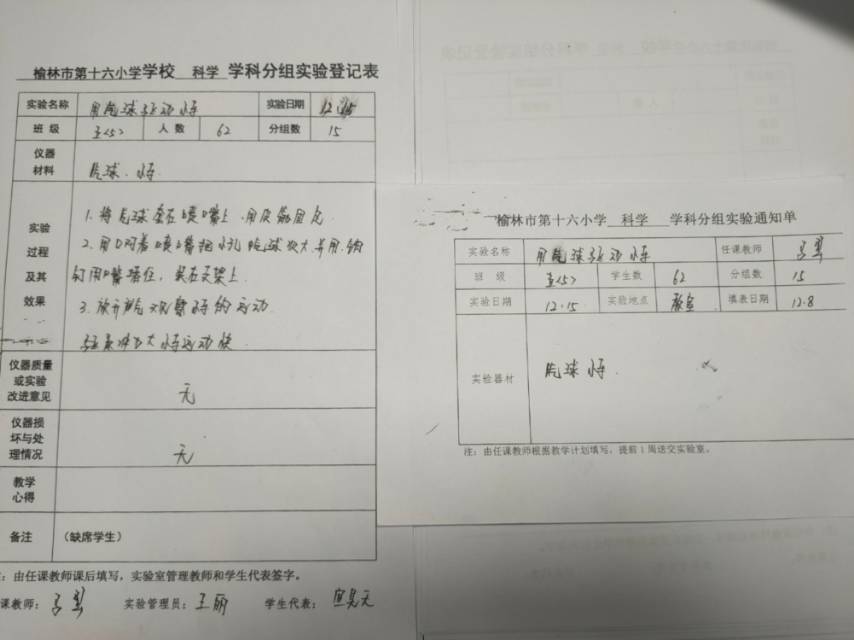 榆林市第十六小学学校 科学 学科分组实验登记表
实验名称 用气球驱动小车 实验日期 12.15
班 级 五<5> 人 数 62 分组数 15
仪器材料 气球、小车
实验过程及其效果
1. 将气球套在喷嘴上,用皮筋固定
2. 用口对着喷嘴把小气球吹大并用
钉用嘴堵住,装在支架上
3. 放开 观察小车的运动
大小车运动快
仪器质量或实验改进意见 无
仪器损坏与处理情况 无
教学心得
备注 (缺席学生)
:由任课教师课后填写,实验室管理教师和学生代表签字。
课教师: 实验管理员:王丽 学生代表:
榆林市第十六小学 科学 学科分组实验通知单
实验名称 用气球驱动小车 任课教师
班 级 五<5> 学生数 62 分组数 15
实验日期 12.15 实验地点 教室 填表日期 12.8
实验器材 气球 小车
注:由任课教师根据教学计划填写,提前1周送交实验室。